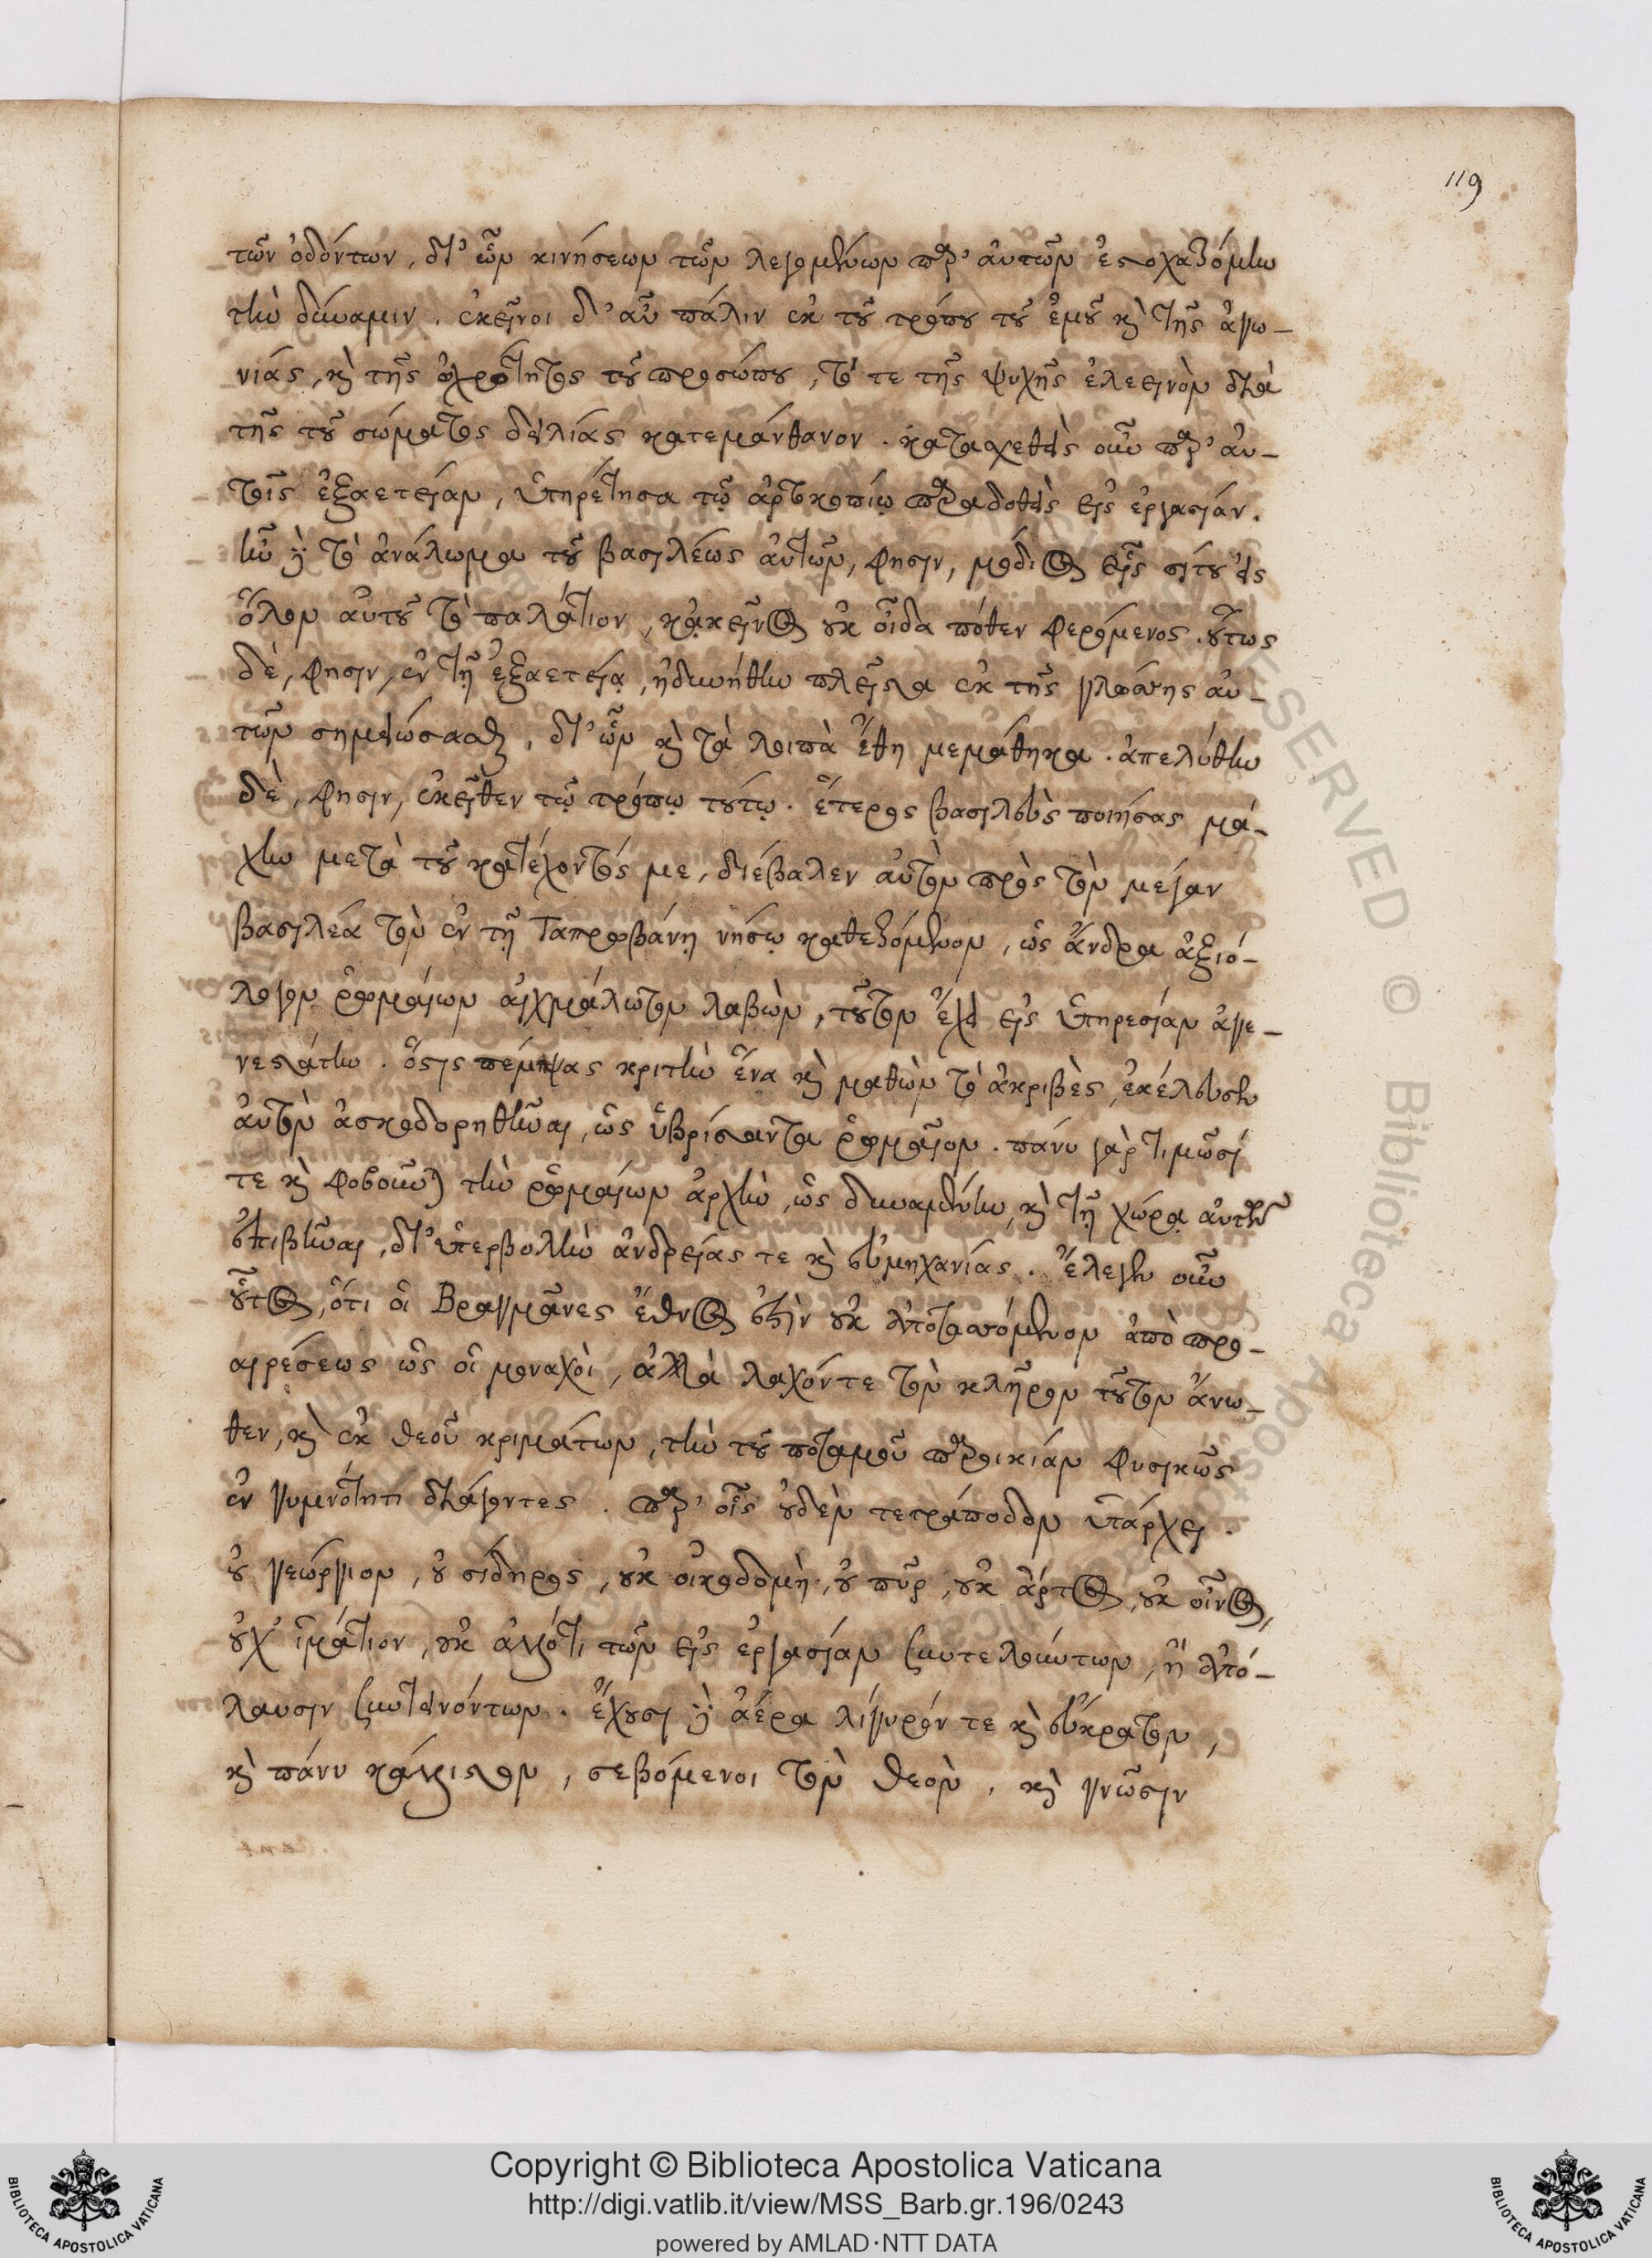 119
τῶν ὀδόντων, δι' ὧν κινήσεων τῶν λεγομένων παρ' αὐτῶν ἐστοχαζόμην
τὴν δύναμιν. ἐκεῖνοι δ' αὖ πάλιν ἐκ τοῦ τρόπου τοῦ ἐμοῦ καὶ τῆς ἀγω-
νίας, καὶ τῆς ὠχρότητος τοῦ προσώπου, τό τε τῆς ψυχῆς ἐλεεινὸν διὰ
τῆς τοῦ σώματος δειλίας κατεμάνθανον. κατασχεθεὶς οὖν παρ' αὐ-
τοῖς ἑξαετείαν, ὑπηρέτησα τῷ ἀρτοκοπίῳ παραδοθεὶς εἰς ἐργασίαν.
ἦν δὲ τὸ ἀνάλωμα τοῦ βασιλέως αὐτῶν, φησιν, μόδιος εἷς σίτου εἰς
ὅλον αὐτοῦ τὸ παλάτιον, κἀκεῖνος οὐκ οἶδα πόθεν φερόμενος. οὕτως
δὲ, φησιν, ἐν τῇ ἑξαετείᾳ, ἠδυνήθην πλεῖστα ἐκ τῆς γλώττης αὐ-
τῶν σημειώσασθαι, δι' ὧν καὶ τὰ λοιπὰ ἔθη μεμάθηκα. ἀπελύθην
δὲ, φησιν, ἐκεῖθεν τῷ τρόπῳ τούτῳ. ἕτερος βασιλεὺς ποιήσας μά-
χην μετὰ τοῦ κατέχοντός με, διέβαλεν αὐτὸν πρὸς τὸν μέγαν
βασιλέα τὸν ἐν τῇ Ταπροβάνῃ νήσῳ καθεζόμενον, ὡς ἄνδρα ἀξιό-
λογον ῥωμαίων αἰχμάλωτον λαβὼν, τοῦτον ἔχει εἰς ὑπηρεσίαν ἀγε-
νεστάτην. ὅστις πέμψας κριτὴν ἕνα καὶ μαθὼν τὸ ἀκριβὲς, ἐκέλευσεν
αὐτὸν ἀσκοδορηθῆναι, ὡς ὑβρίσαντα ῥωμαῖον. πάνυ γὰρ τιμῶσί
τε καὶ φοβοῦνται τὴν ῥωμαίων ἀρχὴν, ὡς δυναμένην, καὶ τῇ χώρᾳ αὐτῶν
ἐπιβῆναι, δι' ὑπερβολὴν ἀνδρείας τε καὶ εὐμηχανίας. ἔλεγεν οὖν
οὗτος, ὅτι οἱ Βραγμᾶνες ἔθνος ἐστὶν οὐκ ἀποτασσόμενον ἀπὸ προ-
αιρέσεως ὡς οἱ μοναχοὶ, ἀλλὰ λαχόντε τὸν κλῆρον τοῦτον ἄνω-
θεν, καὶ ἐκ θεοῦ κριμάτων, τὴν τοῦ ποταμοῦ παροικίαν φυσικῶς
ἐν γυμνότητι διάγοντες. παρ' οἷς οὐδὲν τετράποδον ὑπάρχει.
οὐ γεώργιον, οὐ σίδηρος, οὐκ οἰκοδομὴ, οὐ πῦρ, οὐκ ἄρτος, οὐκ οἶνος,
οὐχ ἱμάτιον, οὐκ ἄλλο τι τῶν εἰς ἐργασίαν συντελούντων, ἢ ἀπό-
λαυσιν συντεινόντων. ἔχουσι δὲ ἀέρα λιγυρόν τε καὶ εὔκρατον,
καὶ πάνυ κάλλιστον, σεβόμενοι τὸν θεὸν, καὶ γνῶσιν
Copyright © Biblioteca Apostolica Vaticana
http://digi.vatlib.it/view/MSS_Barb.gr.196/0243
powered by AMLAD·NTT DATA
BIBLIOTECA APOSTOLICA VATICANA
BIBLIOTECA APOSTOLICA VATICANA